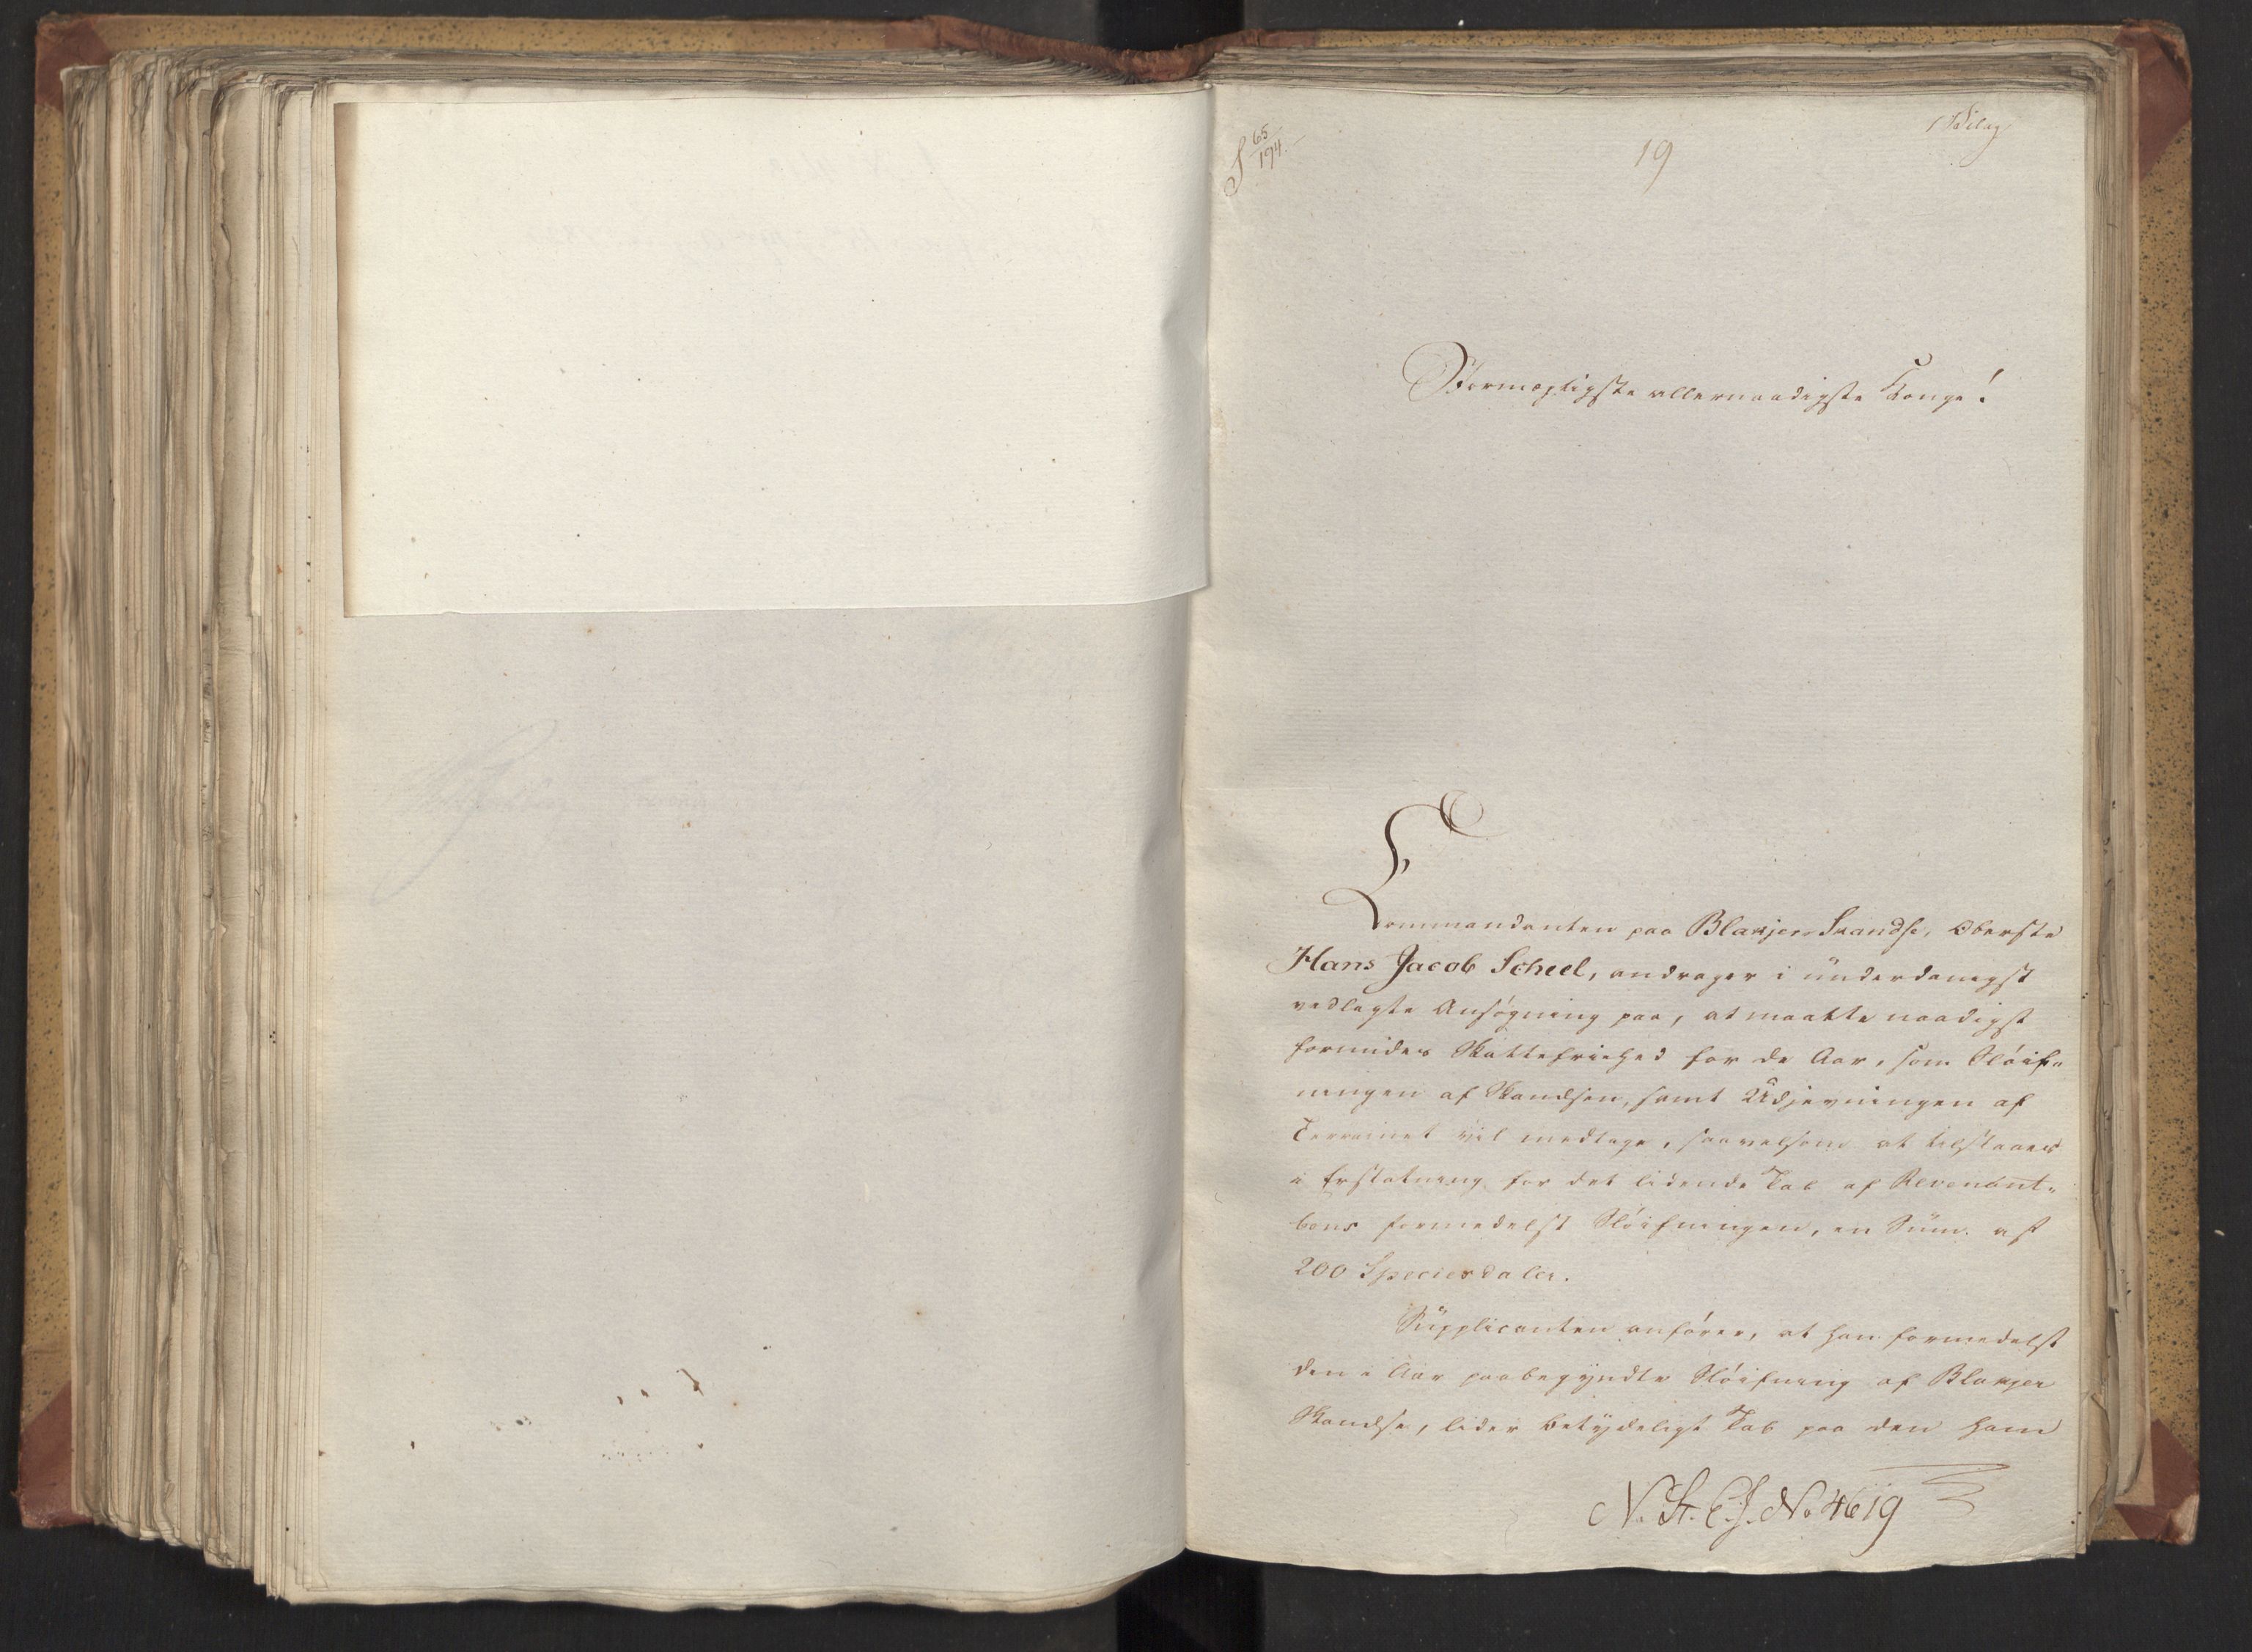 S 65/194.
19
1 Bilag
Stormægtigste allernaadigste Konge!
Commandanten paa Blakjer Skandse, Oberste
Hans Jacob Scheel, andrager i underdanigst
vedlagte Ansøgning paa, at maatte naadigst
forundes Skattefriehed for de Aar, som Sløif-
ningen af Skandsen, samt Udjevningen af
Terrainet vil medtage, saavelsom at tilstaaes
i Erstatning for det lidende Tab af Revenünt-
bons formedelst Sløifningen, en Sum af
200 Speciesdaler.
Supplicanten anfører, at han formedelst
den i Aar paabegyndte Sløifning af Blakjer
Skandse, lider betydeligt Tab paa den ham
N. St. C. J. No 4619